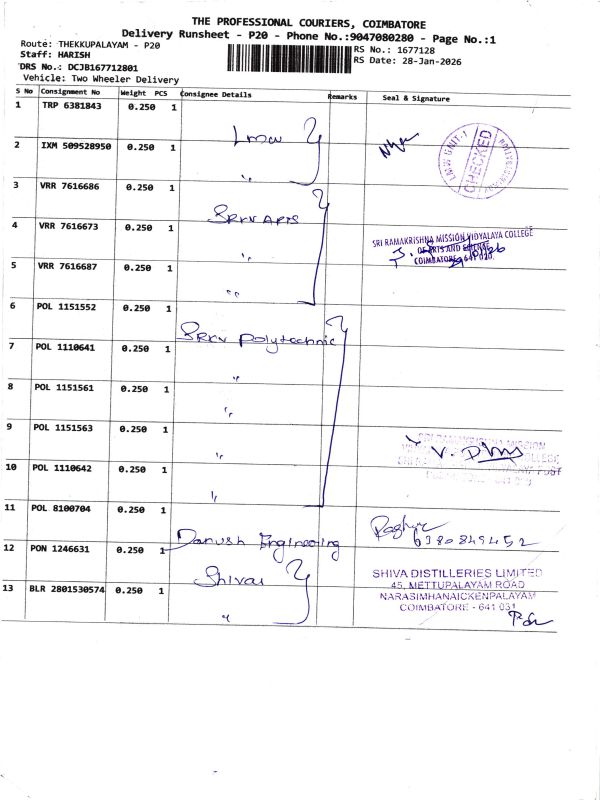 THE PROFESSIONAL COURIERS, COIMBATORE
Delivery Runsheet - P20 - Phone No.:9047080280 - Page No.:1
Route: THEKKUPALAYAM - P20
Staff: HARISH
DRS No.: DCJB167712801
Vehicle: Two Wheeler Delivery
RS No.: 1677128
RS Date: 28-Jan-2026
S No Consignment No Weight PCS Consignee Details Remarks Seal & Signature
1 TRP 6381843 0.250 1 Lmw
2 IXM 509528950 0.250 1 "
LMW UNIT-1 CHECKED
3 VRR 7616686 0.250 1 SRKV ARTS
4 VRR 7616673 0.250 1 "
SRI RAMAKRISHNA MISSION VIDYALAYA COLLEGE
OF ARTS AND SCIENCE
COIMBATORE - 641 020.
5 VRR 7616687 0.250 1 "
6 POL 1151552 0.250 1 SRKV Polytechnic
7 POL 1110641 0.250 1 "
8 POL 1151561 0.250 1 "
9 POL 1151563 0.250 1 "
SRI RAMAKRISHNA MISSION
10 POL 1110642 0.250 1 "
11 POL 8100704 0.250 1 Danush Engineering
Raghu
6380849452
12 PON 1246631 0.250 1 Shiva
13 BLR 2801530574 0.250 1 "
SHIVA DISTILLERIES LIMITED
45, METTUPALAYAM ROAD
NARASIMHANAICKENPALAYAM
COIMBATORE - 641 031